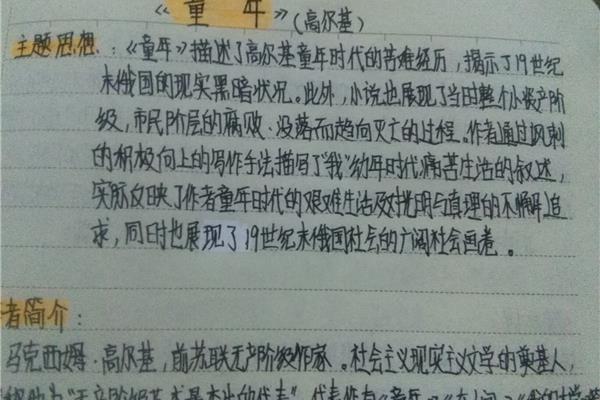 《童年》(高尔基)
主题思想:《童年》描述了高尔基童年时代的苦难经历,揭示了19世纪
末俄国的现实黑暗状况。此外,小说也展现了当时整个小资产阶
级,市民阶层的腐败、没落而趋向灭亡的过程。作者通过讽刺
的积极向上的写作手法描写了“我”幼年时代痛苦生活的叙述,
实际反映了作者童年时代的艰难生活及对光明与真理的不懈追
求,同时也展现了19世纪末俄国社会的广阔社会画卷。
者简介:
马克西姆·高尔基,前苏联无产阶级作家。社会主义现实主义文学的奠基人,
“无产阶级艺术最杰出的代表”代表作有《童年》《在人间》《我的大学》